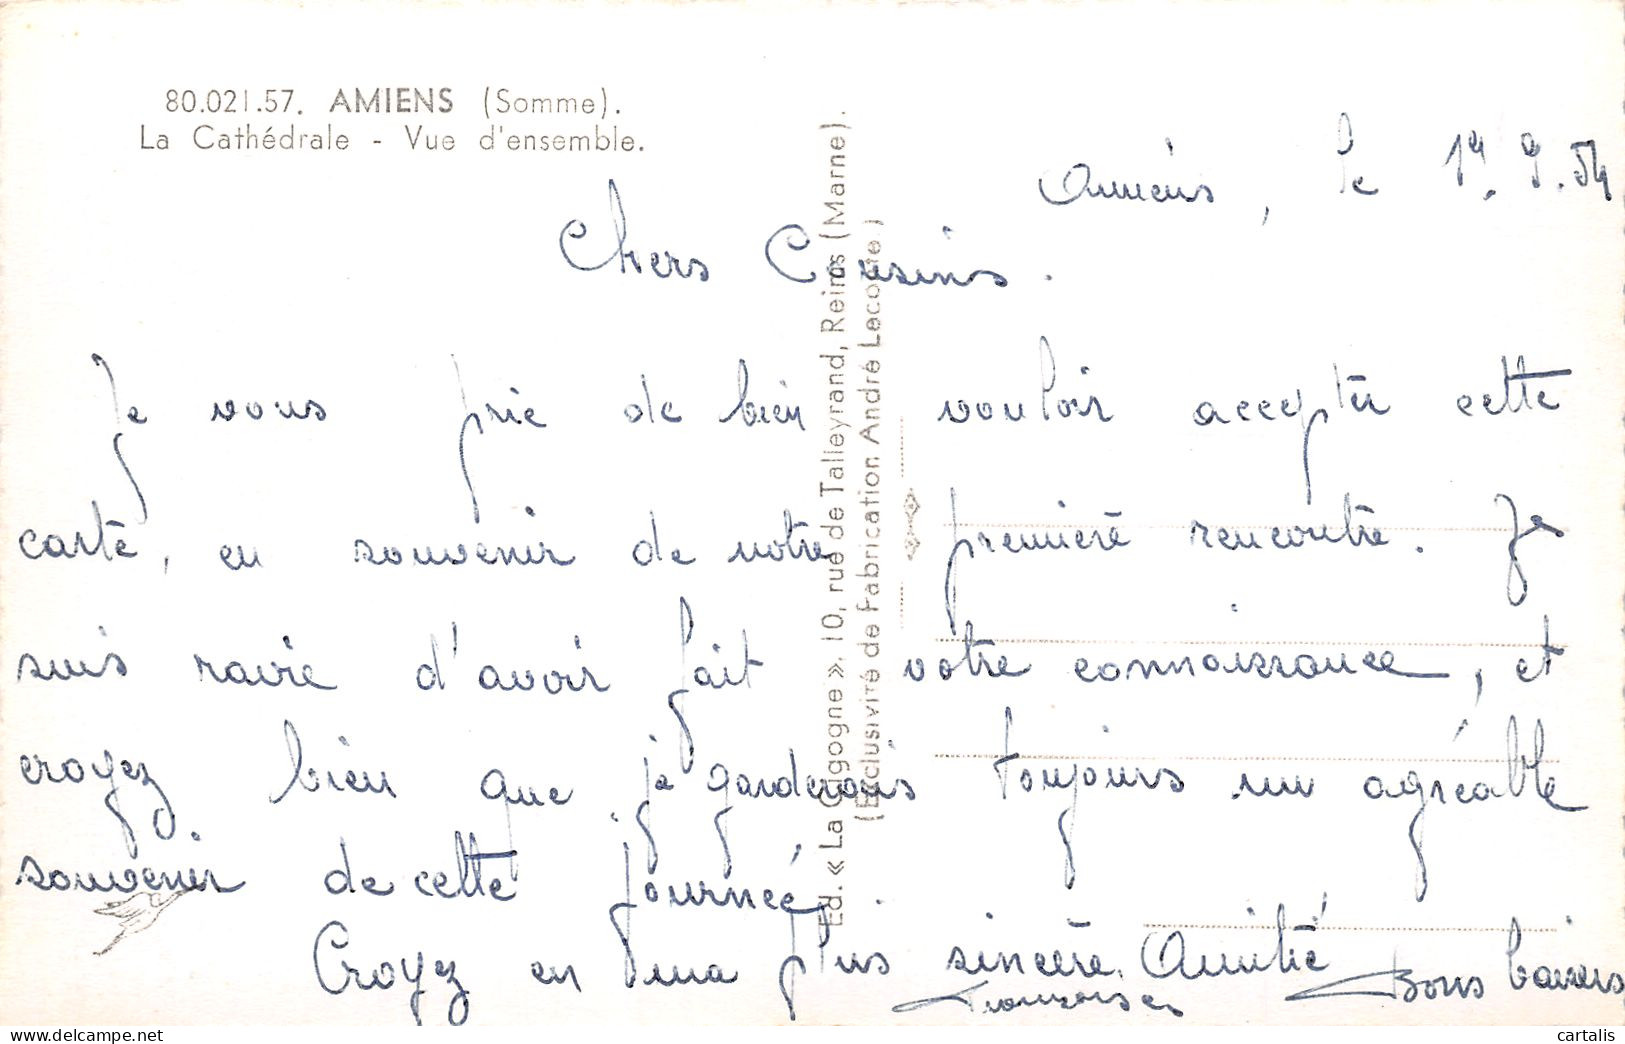 80.021.57. AMIENS (Somme).
La Cathédrale - Vue d'ensemble.
Amiens, le 19.9.54
Chers Cousins.
Je vous prie de bien vouloir accepter cette
carte, en souvenir de notre première rencontre. Je
suis ravie d'avoir fait votre connaissance, et
croyez bien que je garderais toujours un agréable
souvenir de cette journée.
Croyez en ma plus sincère Amitié
Bons baisers
Ed. « La Cigogne ». 10, rue de Talleyrand, Reims (Marne).
(Exclusivité de Fabrication André Leconte.)
cartalis